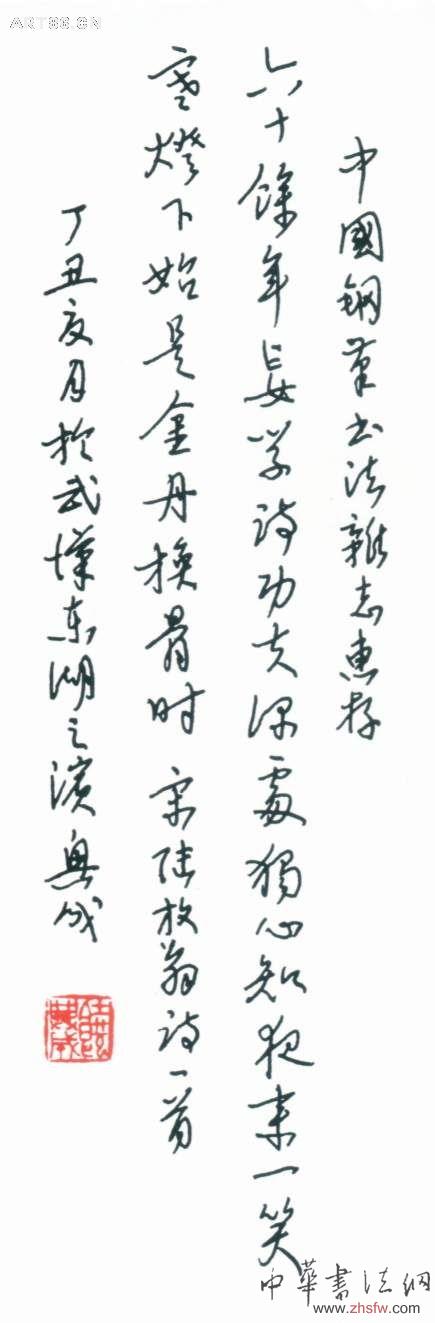 ART86.CN
中國鋼筆书法雜志惠存
六十餘年妄学诗功夫深處獨心知夜来一笑
寒燈下始是金丹換骨时 宋陆放翁诗一首
丁丑亥月於武漢东湖之濱興成
中華书法网
www.zhsfw.com